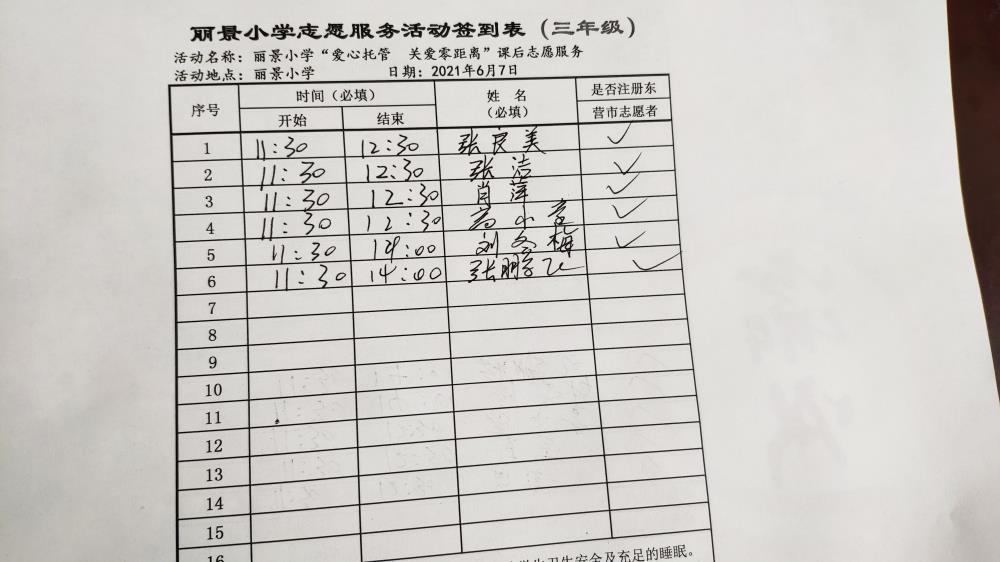 丽景小学志愿服务活动签到表（三年级）
活动名称：丽景小学“爱心托管 关爱零距离”课后志愿服务
活动地点：丽景小学 日期：2021年6月7日
序号 时间（必填） 姓名（必填） 是否注册东营市志愿者
开始 结束
1 11:30 12:30 张良美 ✓
2 11:30 12:30 张洁 ✓
3 11:30 12:30 肖萍 ✓
4 11:30 12:30 高小童 ✓
5 11:30 14:00 刘冬梅 ✓
6 11:30 14:00 张鹏飞 ✓
7
8
9
10
11
12
13
14
15
16
生安全及充足的睡眠。